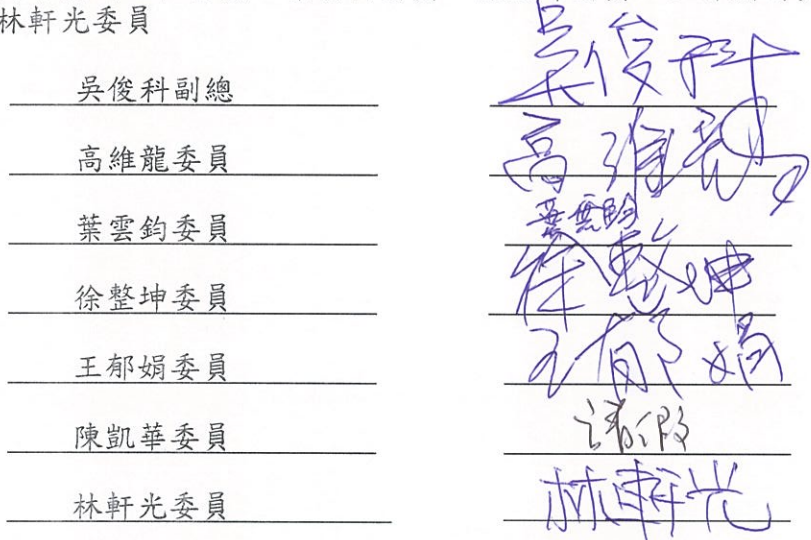 林軒光委員
吳俊科副總 吳俊科
高維龍委員 高維龍
葉雲鈞委員 葉雲鈞
徐整坤委員 徐整坤
王郁娟委員 王郁娟
陳凱華委員 請假
林軒光委員 林軒光